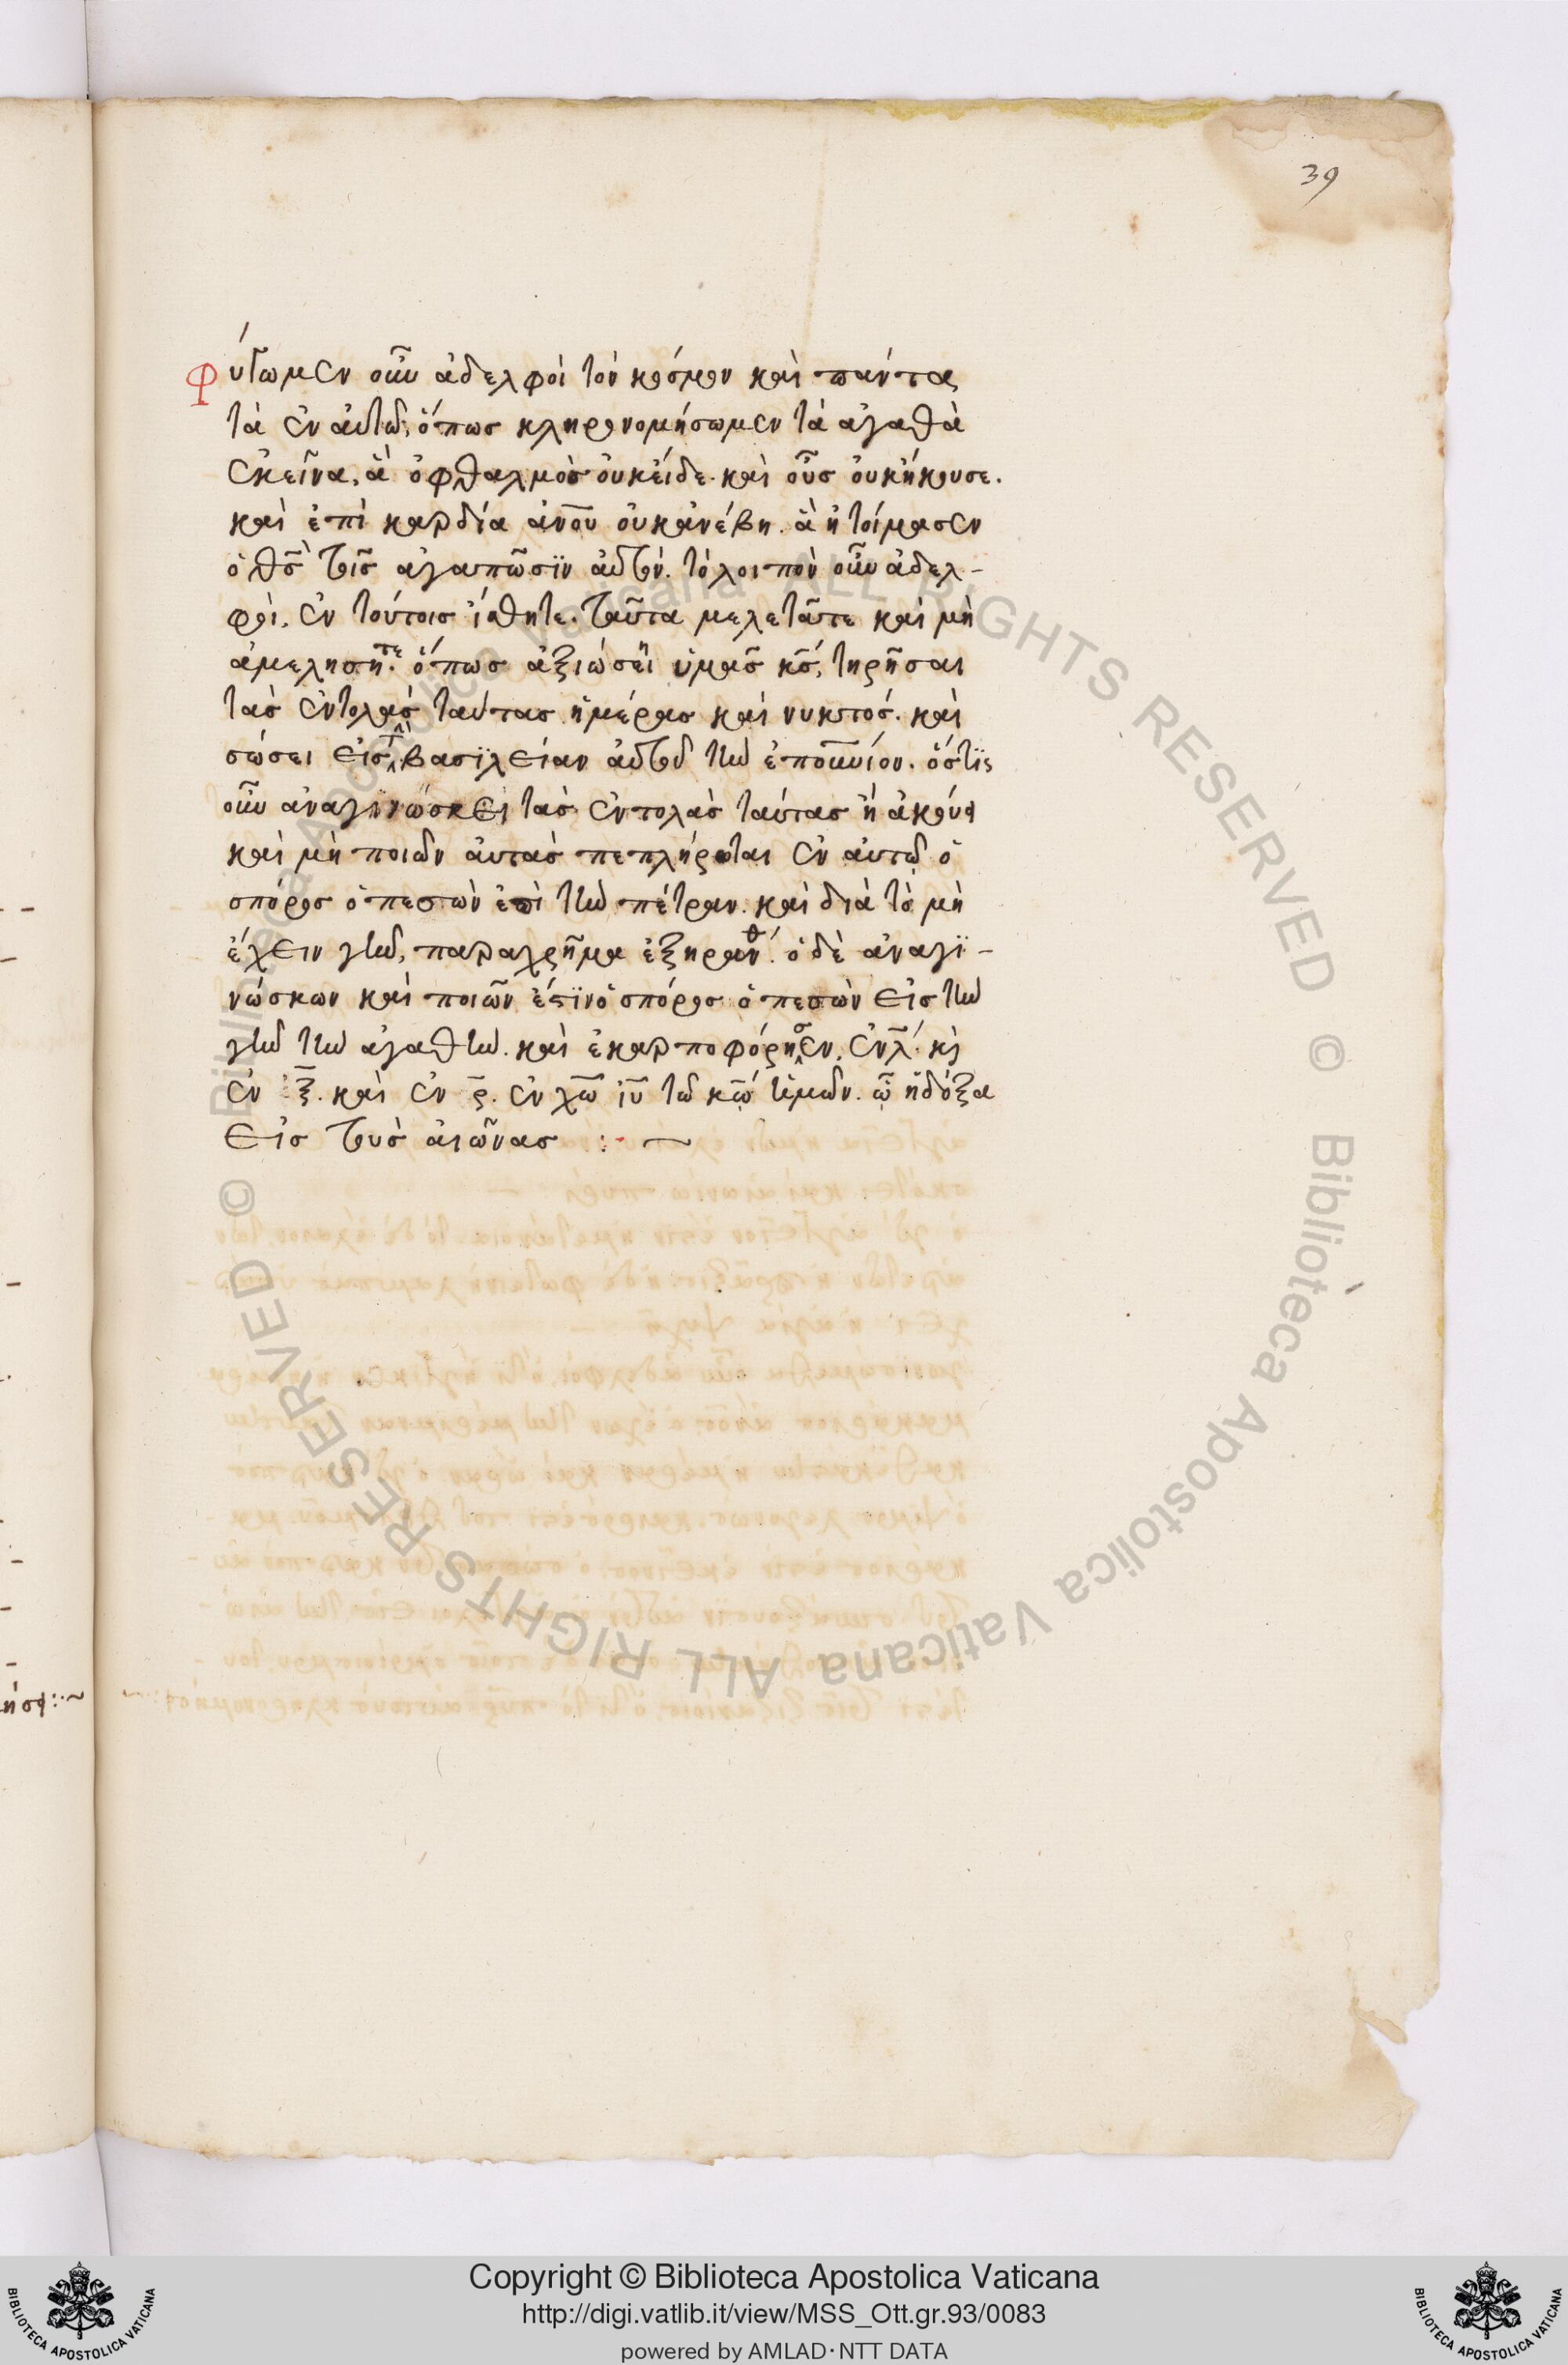 39
Φύγωμεν οὖν ἀδελφοὶ τὸν κόσμον καὶ πάντας
τὰ ἐν ἀυτῶ, ὅπως κληρονομήσωμεν τὰ ἀγαθὰ
ἐκεῖνα, ἃ ὀφθαλμὸς ὀυκ εἶδε. καὶ οὖς ὀυκ ἤκουσε.
καὶ ἐπὶ καρδία ἀν̅ου ὀυκ ἀνέβη. ἃ ἡτοίμασεν
ὁ θς̅ τοῖς ἀγαπῶσϊν ἀυτόν. τὸ λοιπὸν οὖν ἀδελ-
φοὶ, ἐν τούτοις ἴσθητε. ταῦτα μελετᾶτε καὶ μὴ
ἀμελησῆτε. ὅπως ἀξιώσῃ ὑμᾶς κς̅, τηρῆσαι
τὰς ἐντολὰς ταύτας ἡμέρας καὶ νυκτός. καὶ
σώσει εἰς τὴν βασϊλείαν ἀυτοῦ τὴν ἐπουνίον. ὅστϊς
οὖν ἀναγϊνώσκει τὰς ἐντολὰς ταύτας ἢ ἀκούει
καὶ μὴ ποιῶν ἀυτὰς πεπλήρωται ἐν ἀυτῶ ὁ
σπόρος ὁ πεσὼν ἐπὶ τὴν πέτραν. καὶ διὰ τὸ μὴ
ἔχειν γῆν, παραχρῆμα ἐξηράνθ. ὁ δὲ ἀναγϊ-
νώσκων καὶ ποιῶν ἔστϊν ὁ σπόρος ὁ πεσὼν εἰς τὴν
γῆν τὴν ἀγαθὴν. καὶ ἐκαρποφόρησεν, ἐν λ̅. κὶ
ἐν ξ̅. καὶ ἐν ρ̅. ἐν χω̅ ιυ̅ τῶ κω̅ ἡμῶν. ᾧ ἡ δόξα
εἰς τοὺς ἀιῶνας :- —
ήσει :·~
Copyright © Biblioteca Apostolica Vaticana
http://digi.vatlib.it/view/MSS_Ott.gr.93/0083
powered by AMLAD·NTT DATA
BIBLIOTECA APOSTOLICA VATICANA
BIBLIOTECA APOSTOLICA VATICANA
© Biblioteca Apostolica Vaticana ALL RIGHTS RESERVED © Biblioteca Apostolica Vaticana ALL RIGHTS RESERVED